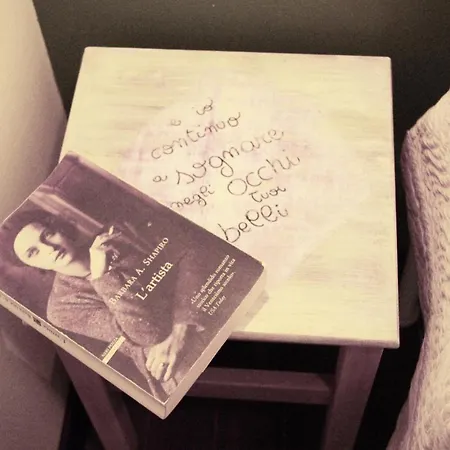 e io
continuo
a sognare
negli occhi
tuoi
belli
BARBARA A. SHAPIRO
L'artista
«Uno splendido romanzo
storico che riporta in vita
il Novecento
USA Today